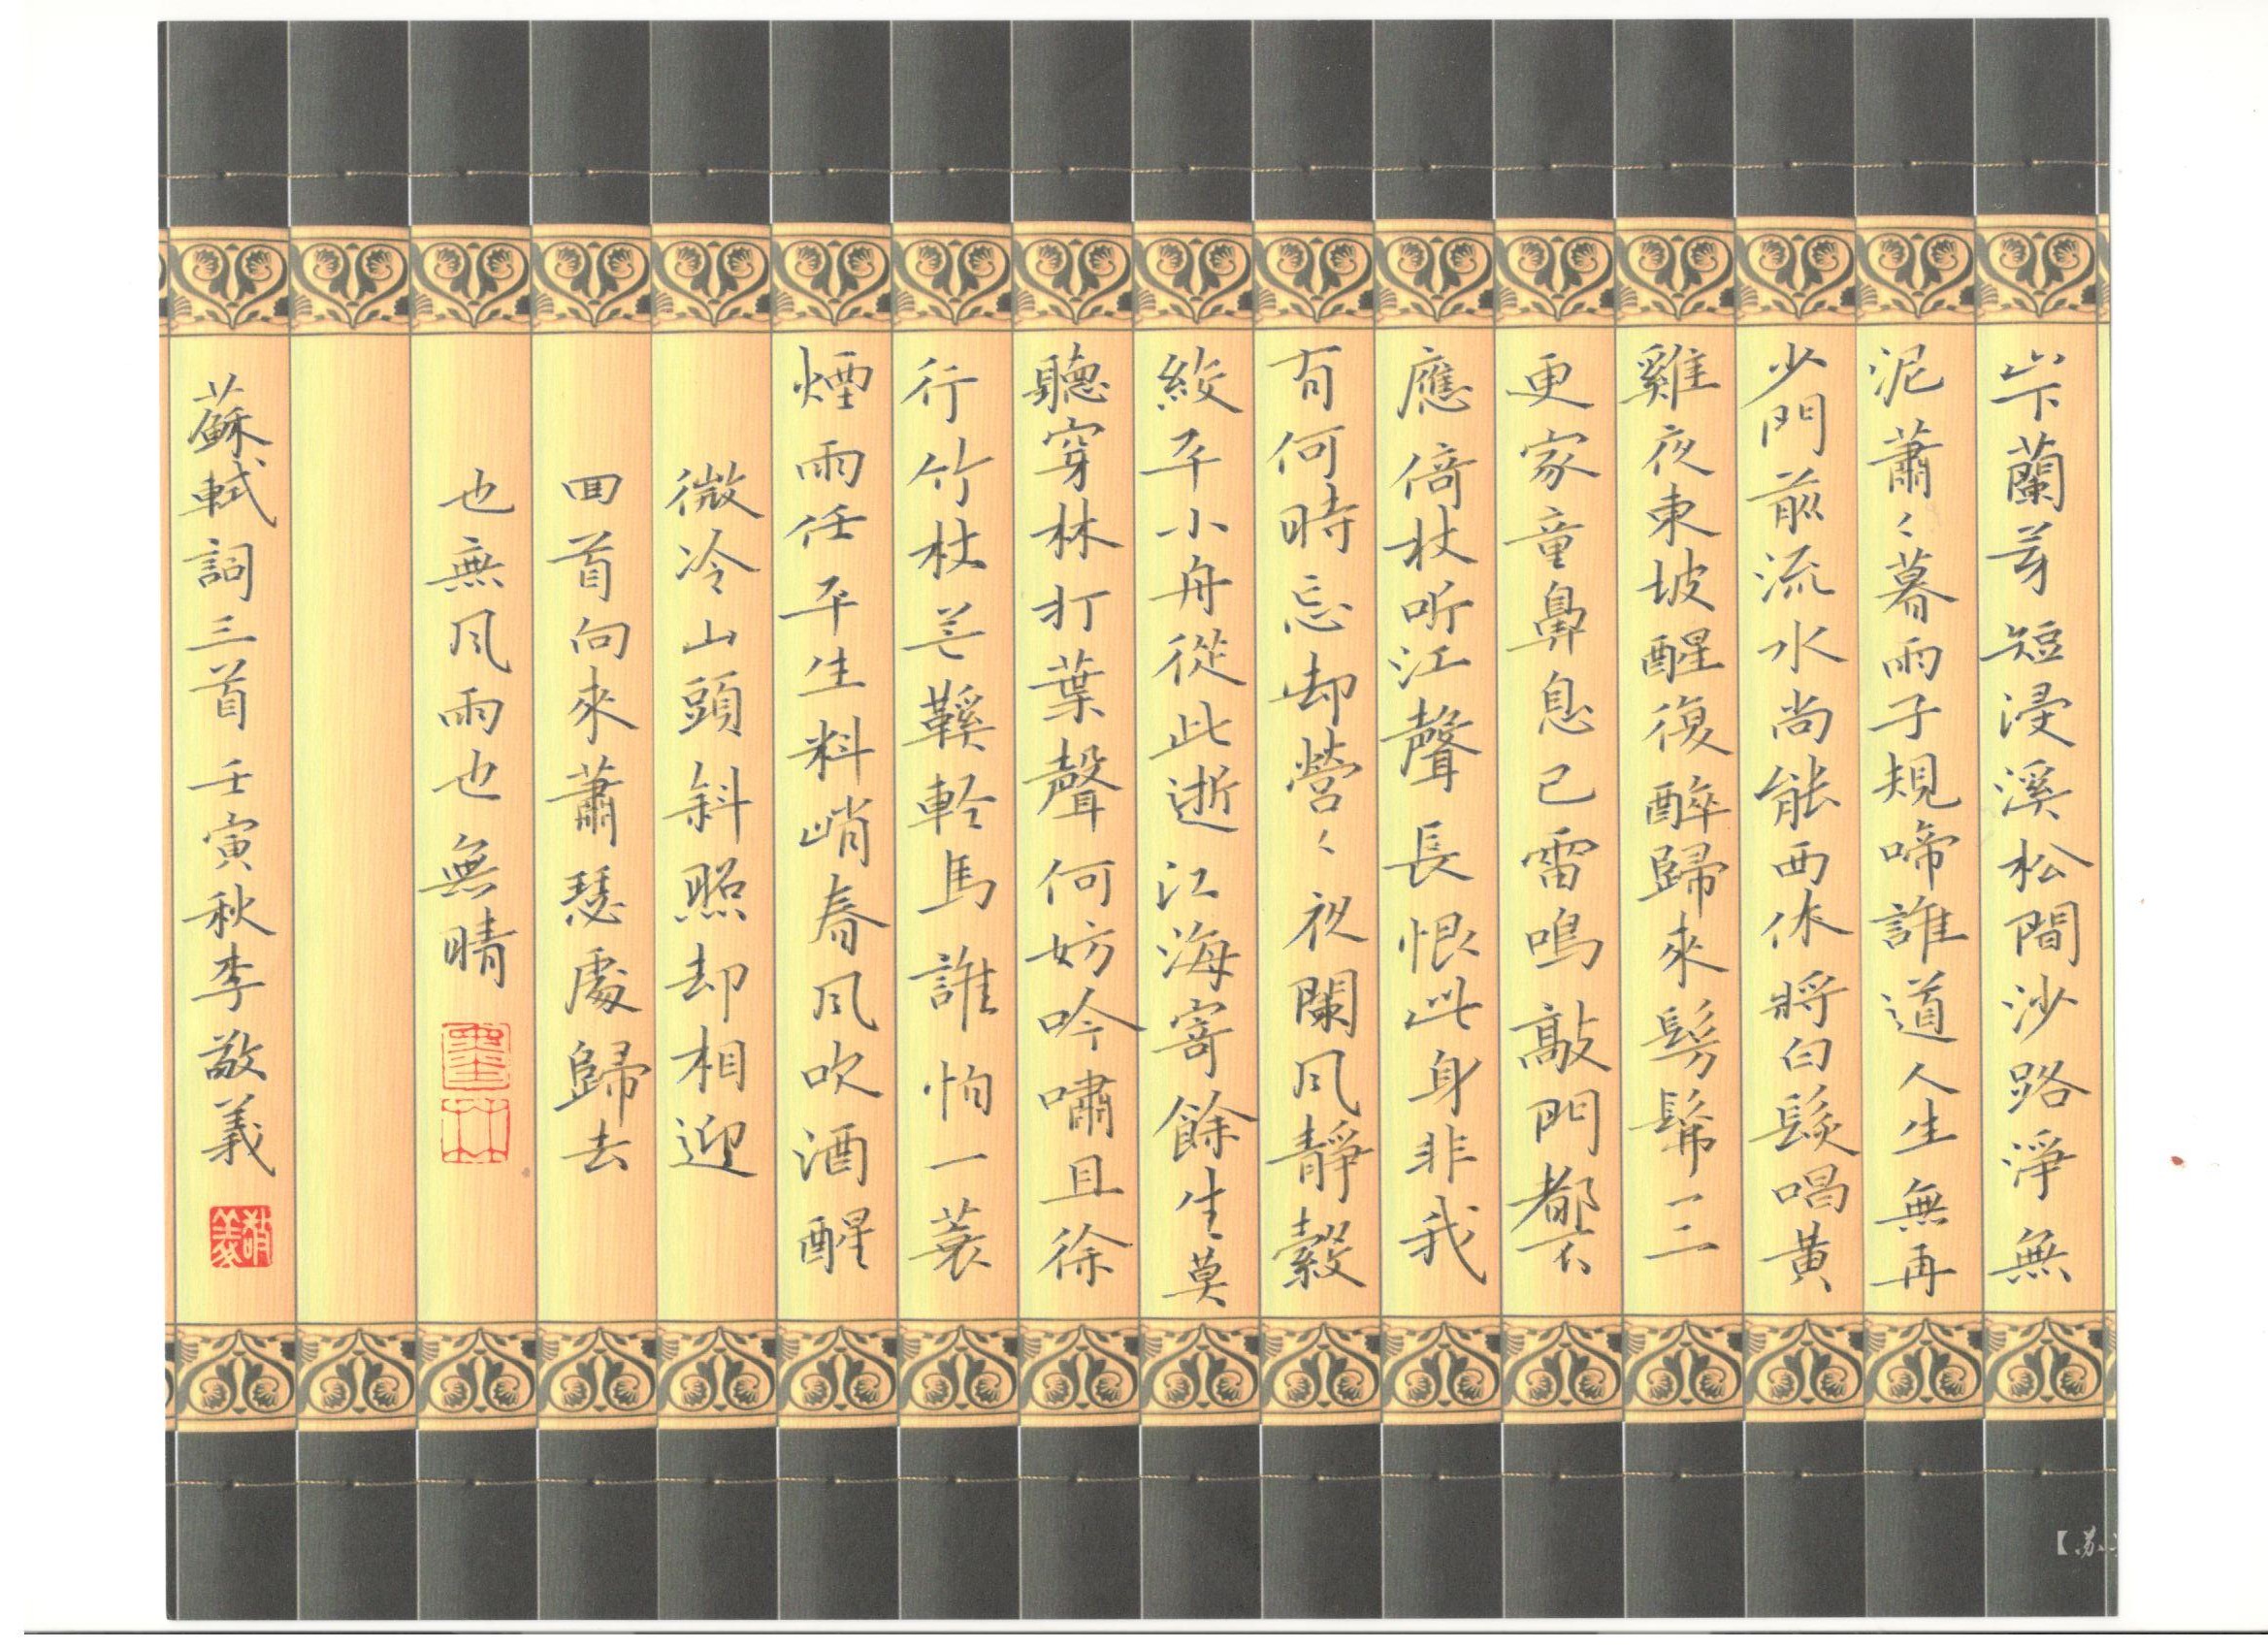 山下蘭芽短浸溪松間沙路淨無
泥蕭々暮雨子規啼誰道人生無再
少門前流水尚能西休將白髮唱黃
雞夜東坡醒復醉歸來髣髴三
更家童鼻息已雷鳴敲門都不
應倚杖听江聲長恨此身非我
有何時忘却營々夜闌風靜縠
紋平小舟從此逝江海寄餘生莫
聽穿林打葉聲何妨吟嘯且徐
行竹杖芒鞵輕馬誰怕一蓑
煙雨任平生料峭春風吹酒醒
微冷山頭斜照却相迎
回首向來蕭瑟處歸去
也無風雨也無晴
蘇軾詞三首壬寅秋李敬義
敬義
【苏